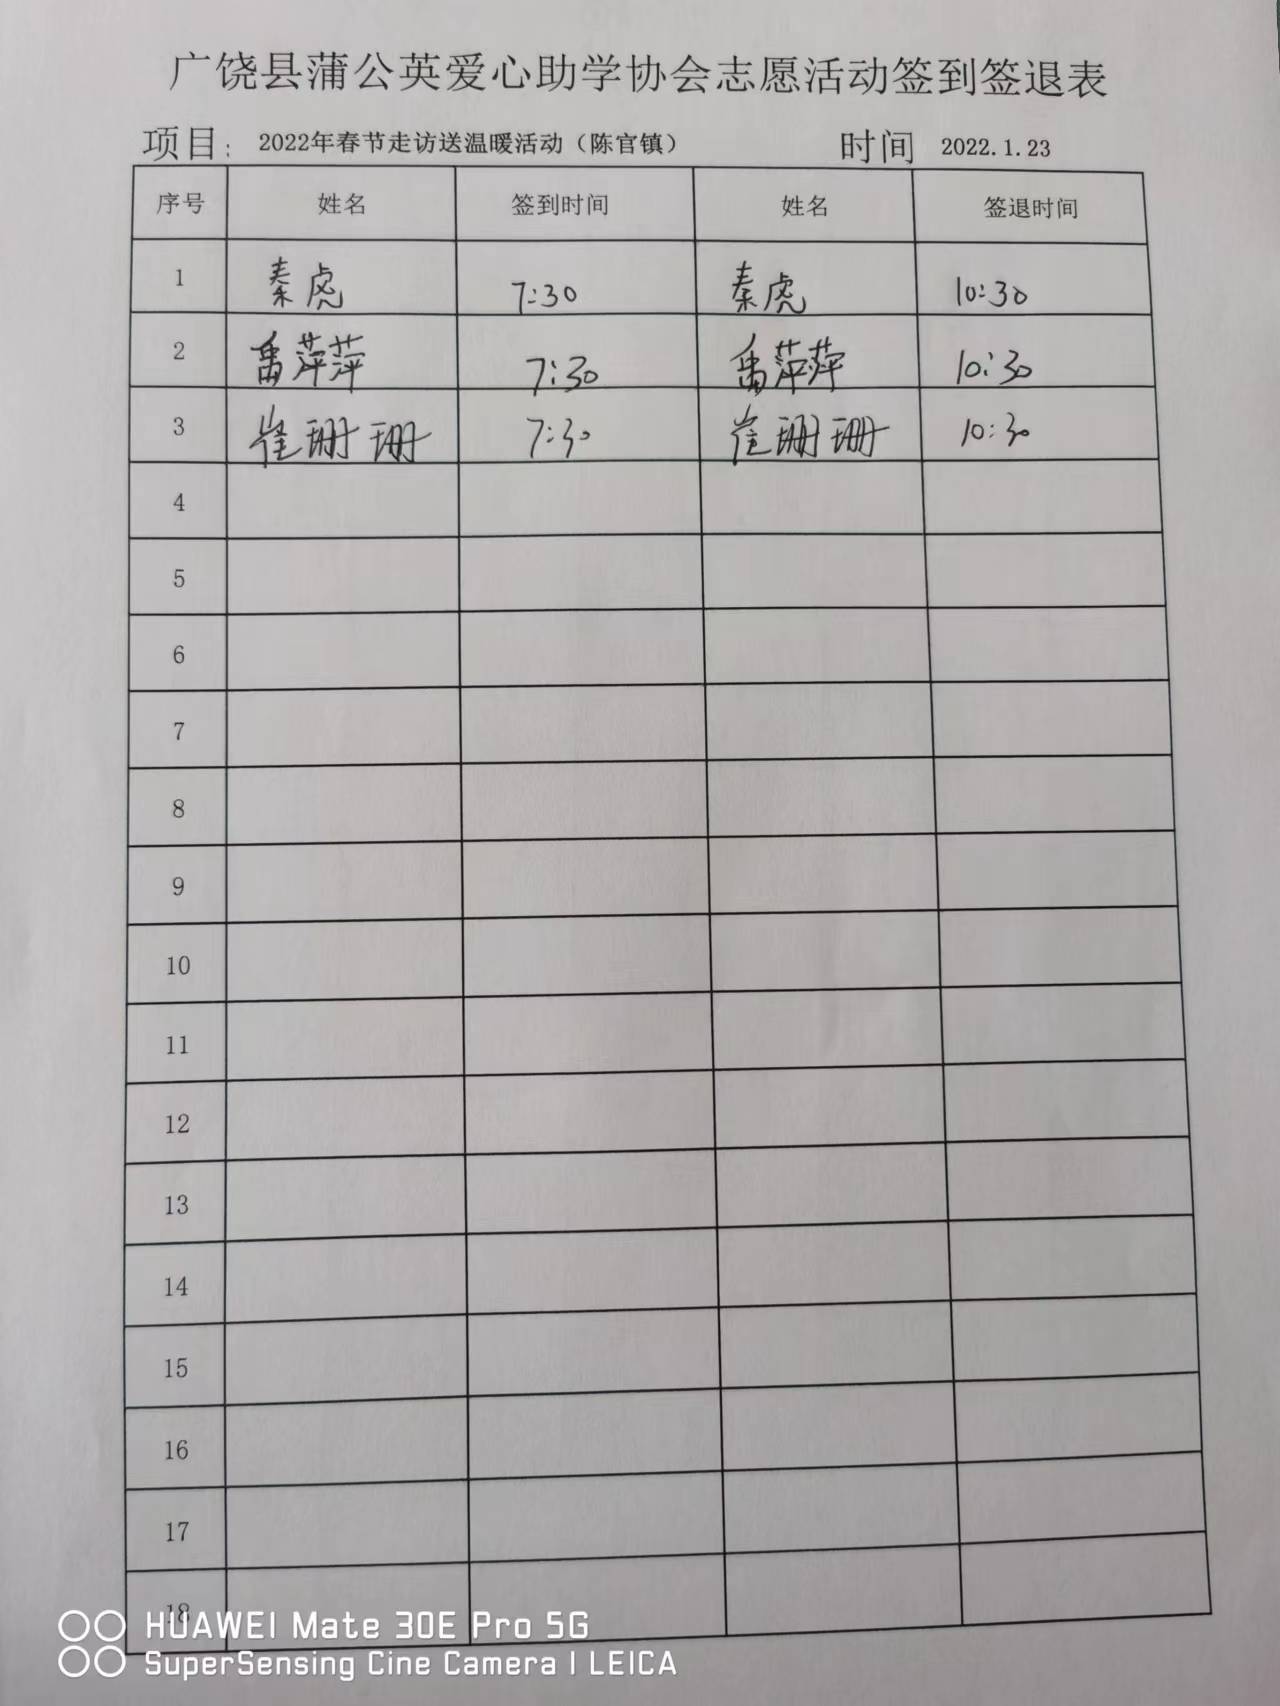 广饶县蒲公英爱心助学协会志愿活动签到签退表
项目: 2022年春节走访送温暖活动（陈官镇） 时间 2022.1.23
序号 姓名 签到时间 姓名 签退时间
1 秦虎 7:30 秦虎 10:30
2 萍萍 7:30 萍萍 10:30
3 崔珊珊 7:30 崔珊珊 10:30
4
5
6
7
8
9
10
11
12
13
14
15
16
17
18
HUAWEI Mate 30E Pro 5G
SuperSensing Cine Camera | LEICA